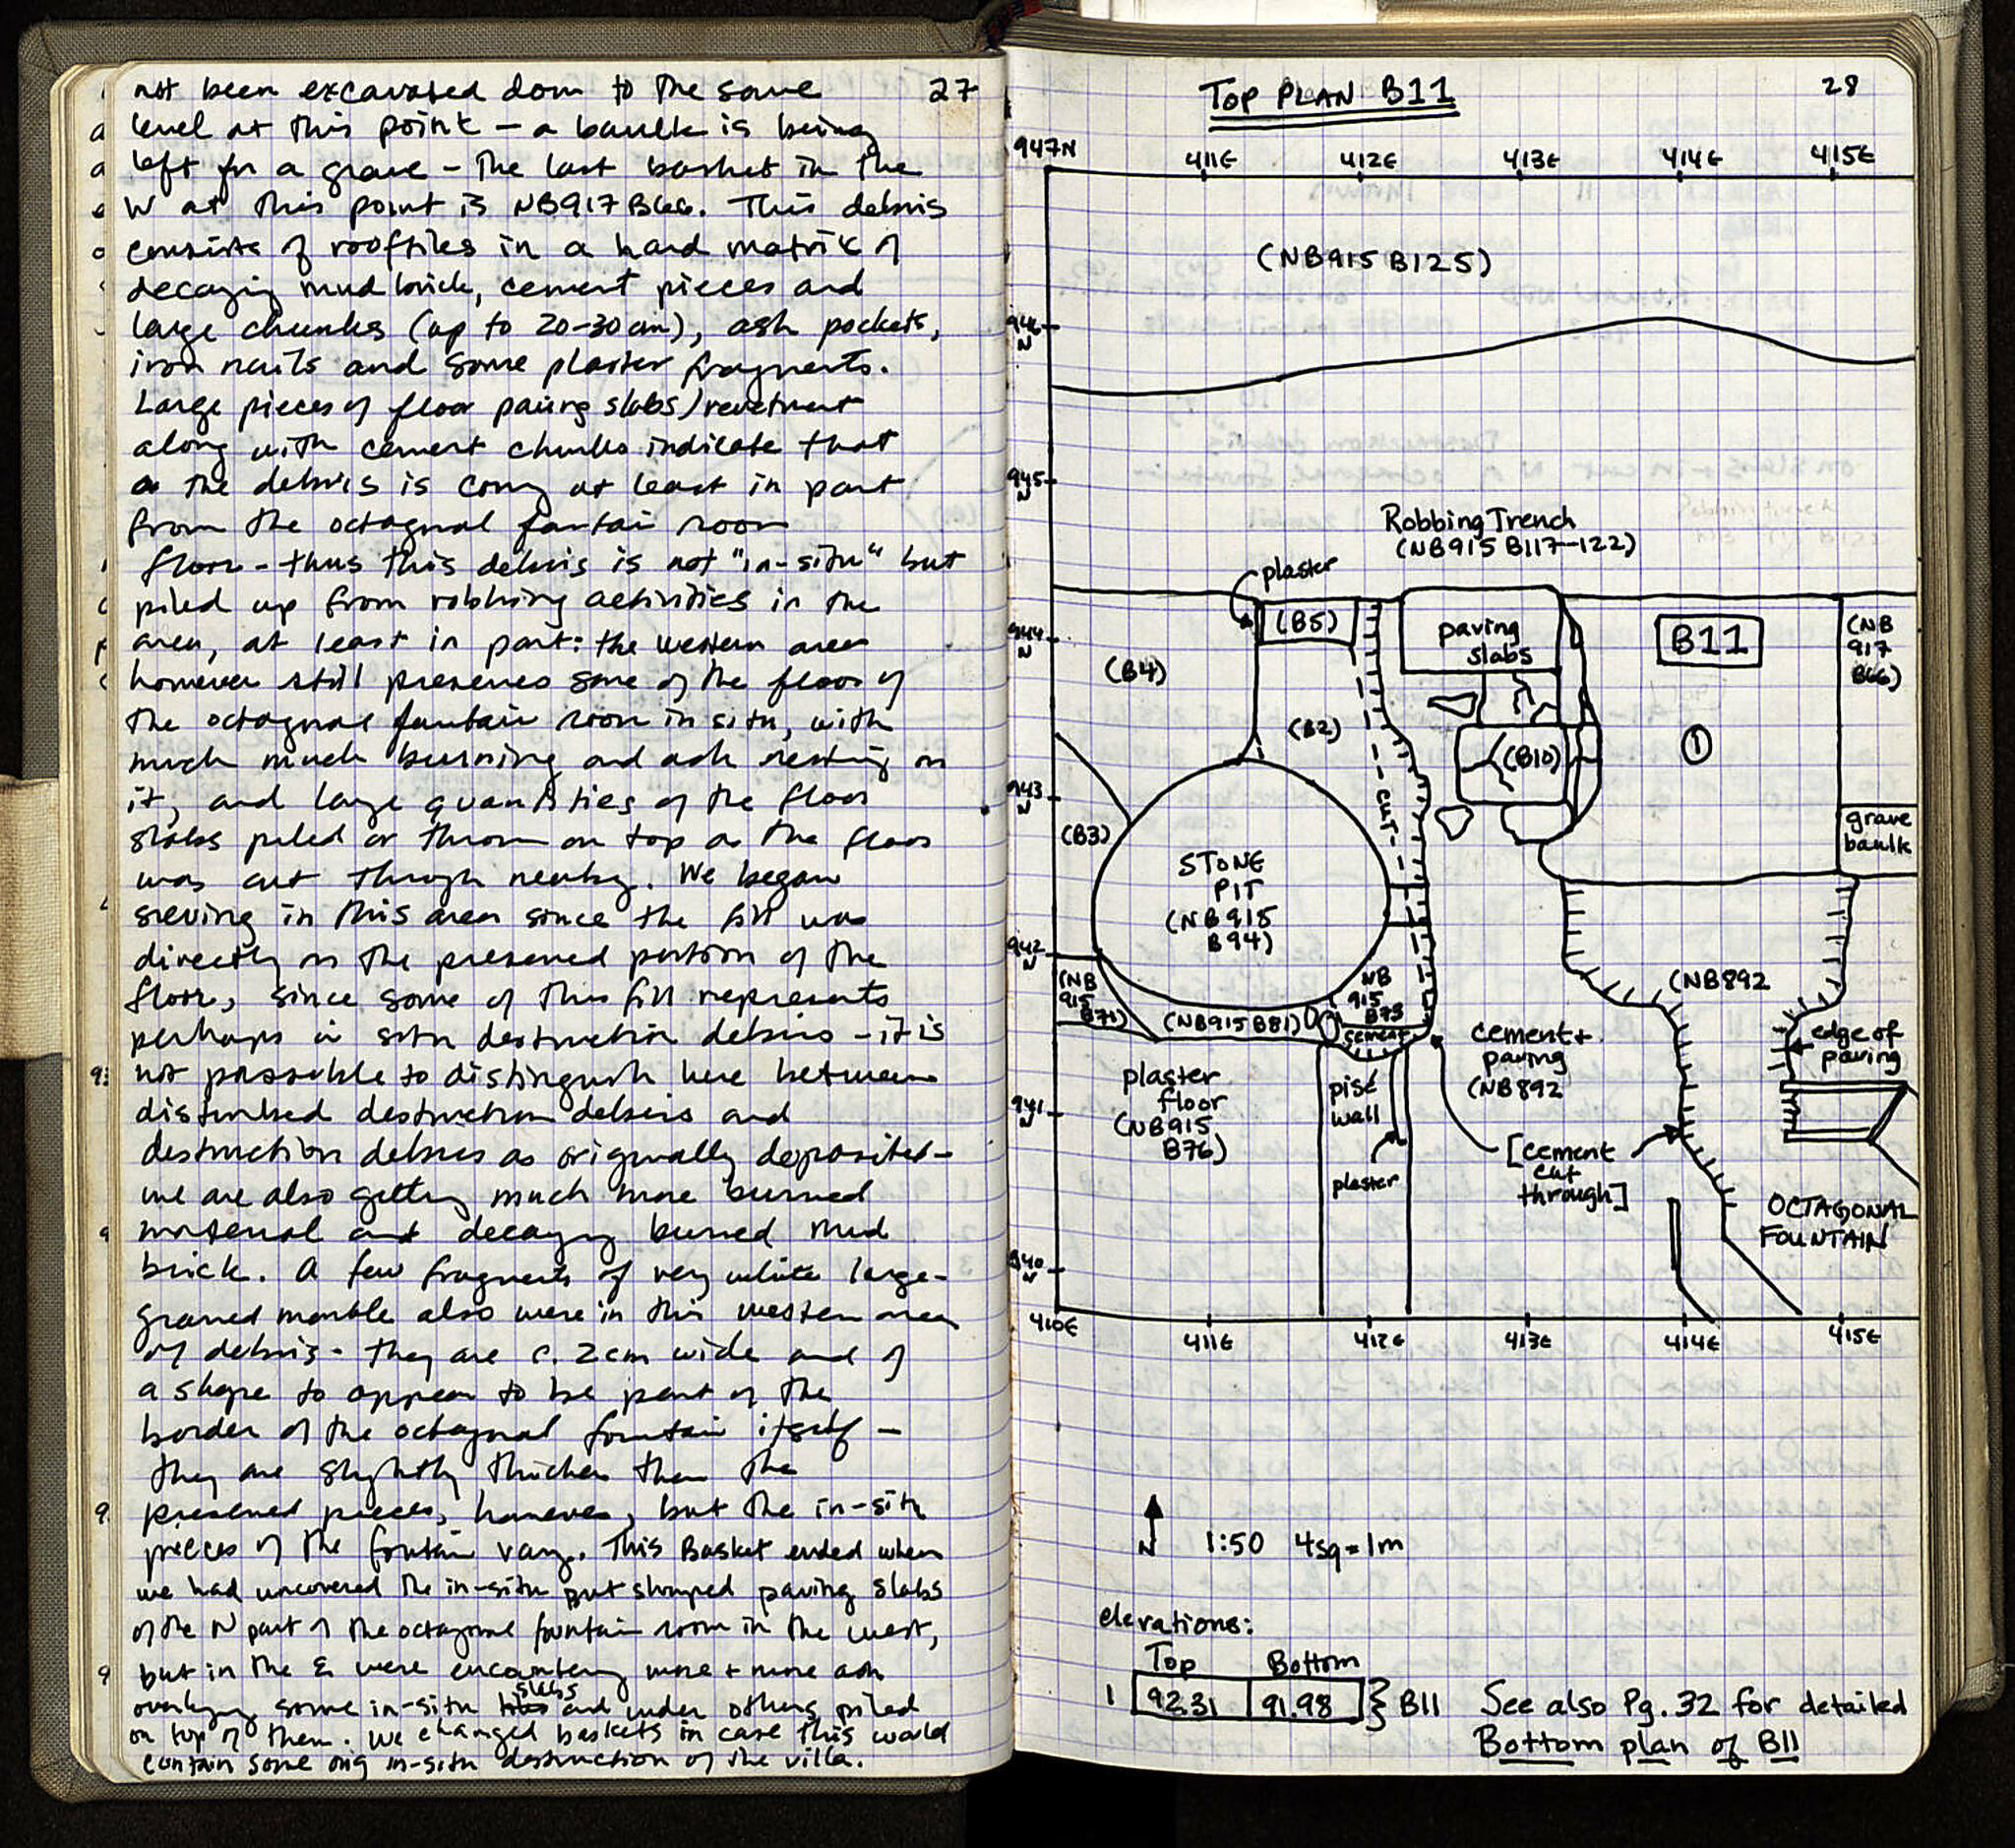 not been excavated down to the same 27
level at this point - a baulk is being
left for a grave - the last basket in the
W at this point is NB917 B66. This debris
consists of rooftiles in a hard matrix of
decaying mud brick, cement pieces and
large chunks (up to 20-30cm), ash pockets,
iron nails and some plaster fragments.
Large pieces of floor paving slabs/revetment
along with cement chunks indicate that
the debris is coming at least in part
from the octagonal fountain room
floor - thus this debris is not "in-situ" but
piled up from robbing activities in the
area, at least in part: the western area
however still preserves some of the floor of
the octagonal fountain room in situ, with
much much burning and ash resting on
it, and large quantities of the floor
slabs piled or thrown on top as the floor
was cut through nearby. We began
sieving in this area since the fill was
directly on the preserved portion of the
floor, since some of this fill represents
perhaps in situ destruction debris - it is
not possible to distinguish here between
disturbed destruction debris and
destruction debris as originally deposited -
we are also getting much more burned
material and decaying burned mud
brick. A few fragments of very white large-
grained marble also were in this western area
of debris - they are c. 2cm wide and of
a shape to appear to be part of the
border of the octagonal fountain itself -
they are slightly thicker than the
preserved pieces, however, but the in-situ
pieces of the fountain vary. This Basket ended when
we had uncovered the in-situ but slumped paving slabs
of the N part of the octagonal fountain room in the west,
but in the E were encountering more + more ash
overlying some in-situ slabs and under others piled
on top of them. We changed baskets in case this would
contain some orig in-situ destruction of the villa.
TOP PLAN B11 28
947N 411E 412E 413E 414E 415E
(NB915 B125)
946 N
945 N
Robbing Trench
(NB915 B117-122)
plaster
944 N
(B5)
paving slabs
B11
(NB 917 B66)
(B4)
(B2)
(B10)
1
943 N
(B3)
CUT
grave baulk
STONE
PIT
(NB915
B94)
942 N
(NB 915 B71)
(NB915 B81)
NB 915 B73
cement
(NB892
cement +
paving
(NB892
edge of
paving
941 N
plaster
floor
(NB915
B76)
pisé
wall
plaster
[cement
cut
through]
OCTAGONAL
FOUNTAIN
940 N
410E 411E 412E 413E 414E 415E
N 1:50 4sq=1m
elevations:
Top Bottom
1 92.31 91.98 } B11 See also Pg. 32 for detailed
Bottom plan of B11